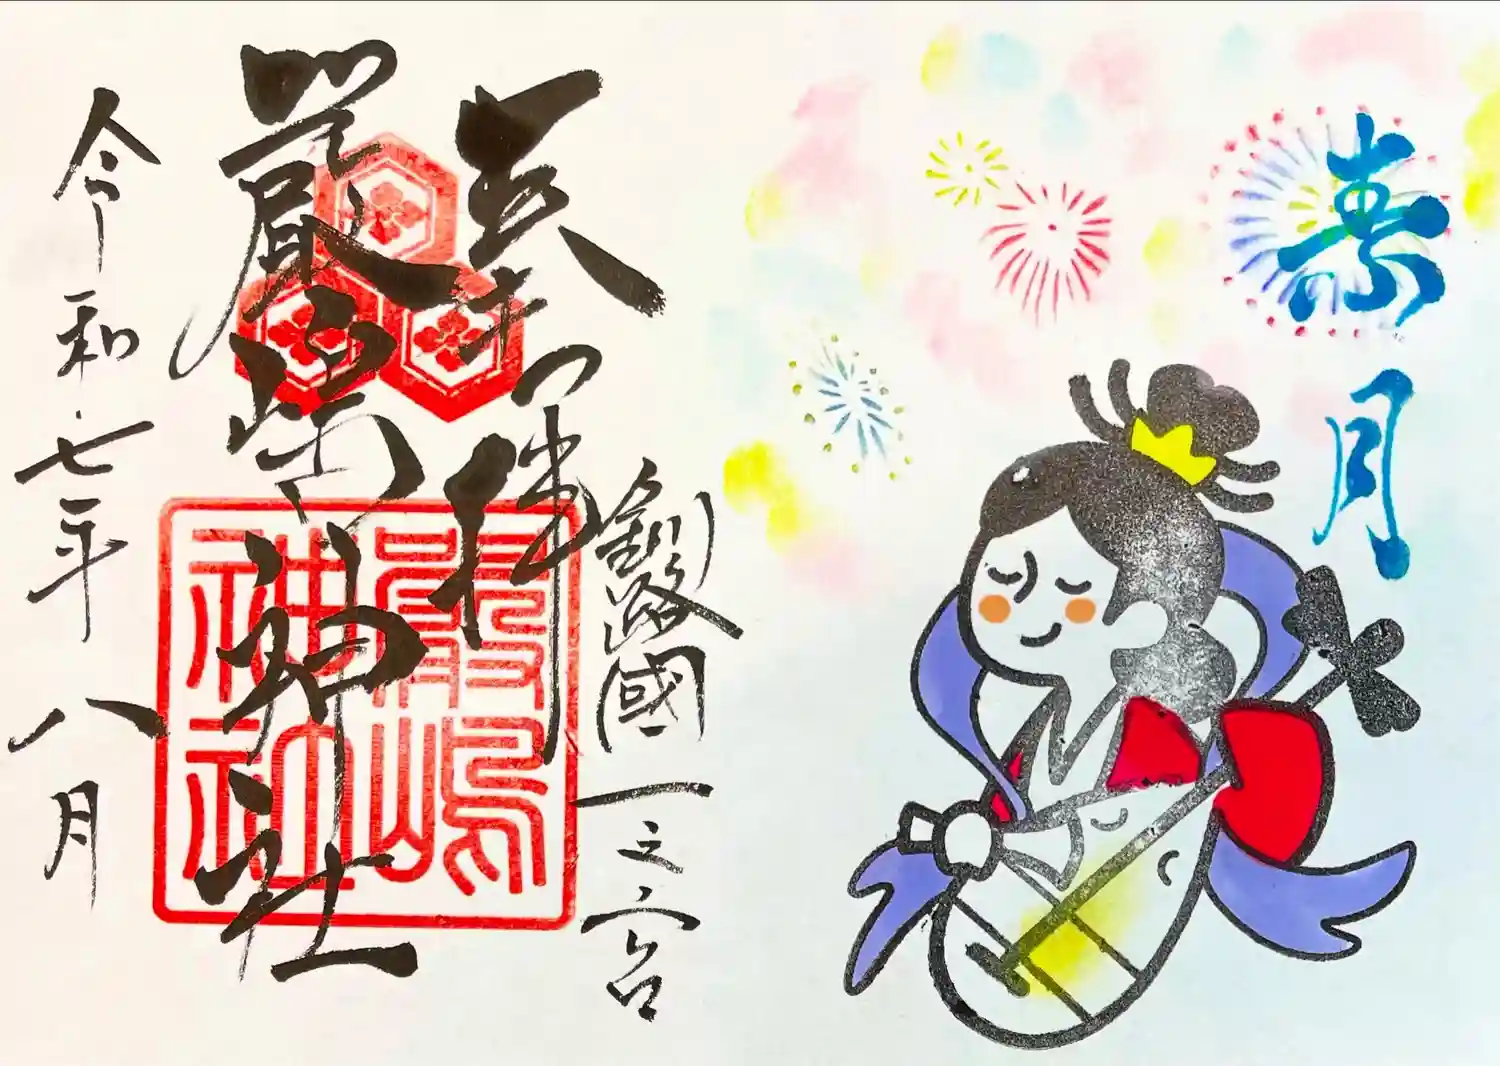 葉月
釧路國一之宮
奉拝
嚴島神社
嚴嶋神社
令和七年八月